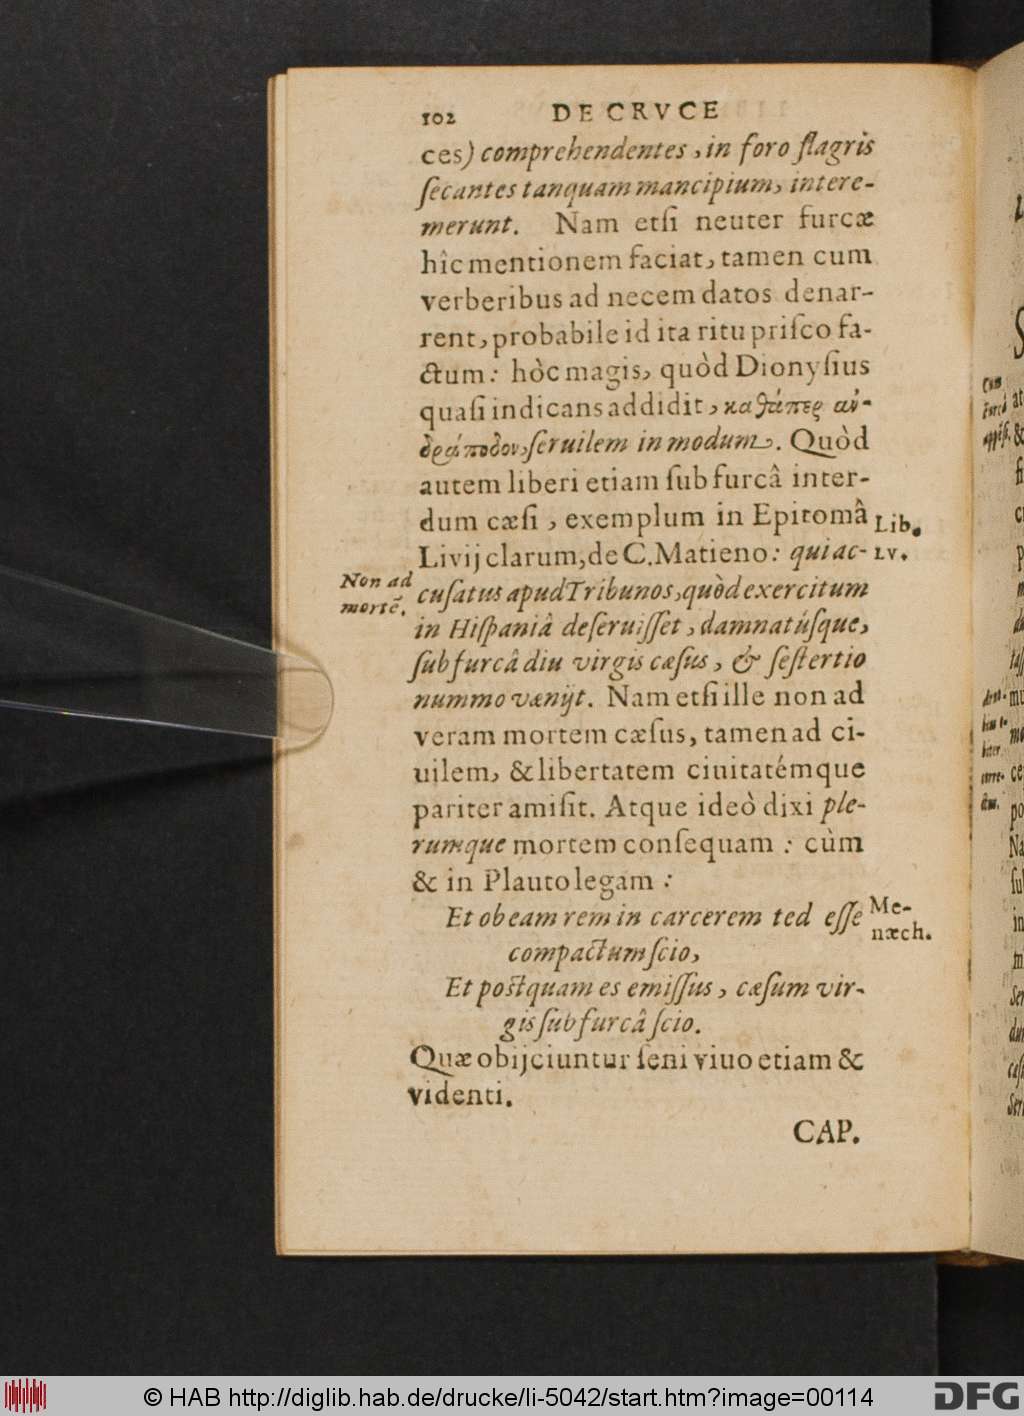 102 DE CRVCE
ces) comprehendentes, in foro flagris
ſecantes tanquam mancipium, intere-
merunt. Nam etſi neuter furcæ
hîc mentionem faciat, tamen cum
verberibus ad necem datos denar-
rent, probabile id ita ritu priſco fa-
ctum: hòc magis, quòd Dionyſius
quaſi indicans addidit, καθάπερ ἀν-
δράποδον, ſeruilem in modum. Quòd
autem liberi etiam ſub furcâ inter-
dum cæſi, exemplum in Epitomâ
Lib.
Livij clarum, de C. Matieno: qui ac-
LV.
Non ad
mortē.
cuſatus apud Tribunos, quòd exercitum
in Hiſpaniâ deſeruiſſet, damnatúſque,
ſub furcâ diu virgis cæſus, & ſeſtertio
nummo vænijt. Nam etſi ille non ad
veram mortem cæſus, tamen ad ci-
uilem, & libertatem ciuitatémque
pariter amiſit. Atque ideò dixi ple-
rumque mortem conſequam: cùm
& in Plauto legam:
Et ob eam rem in carcerem ted eſſe
Me-
næch.
compactum ſcio,
Et poſtquam es emiſſus, cæſum vir-
gis ſub furcâ ſcio.
Quæ obijciuntur ſeni viuo etiam &
videnti.
CAP.
© HAB http://diglib.hab.de/drucke/li-5042/start.htm?image=00114
DFG